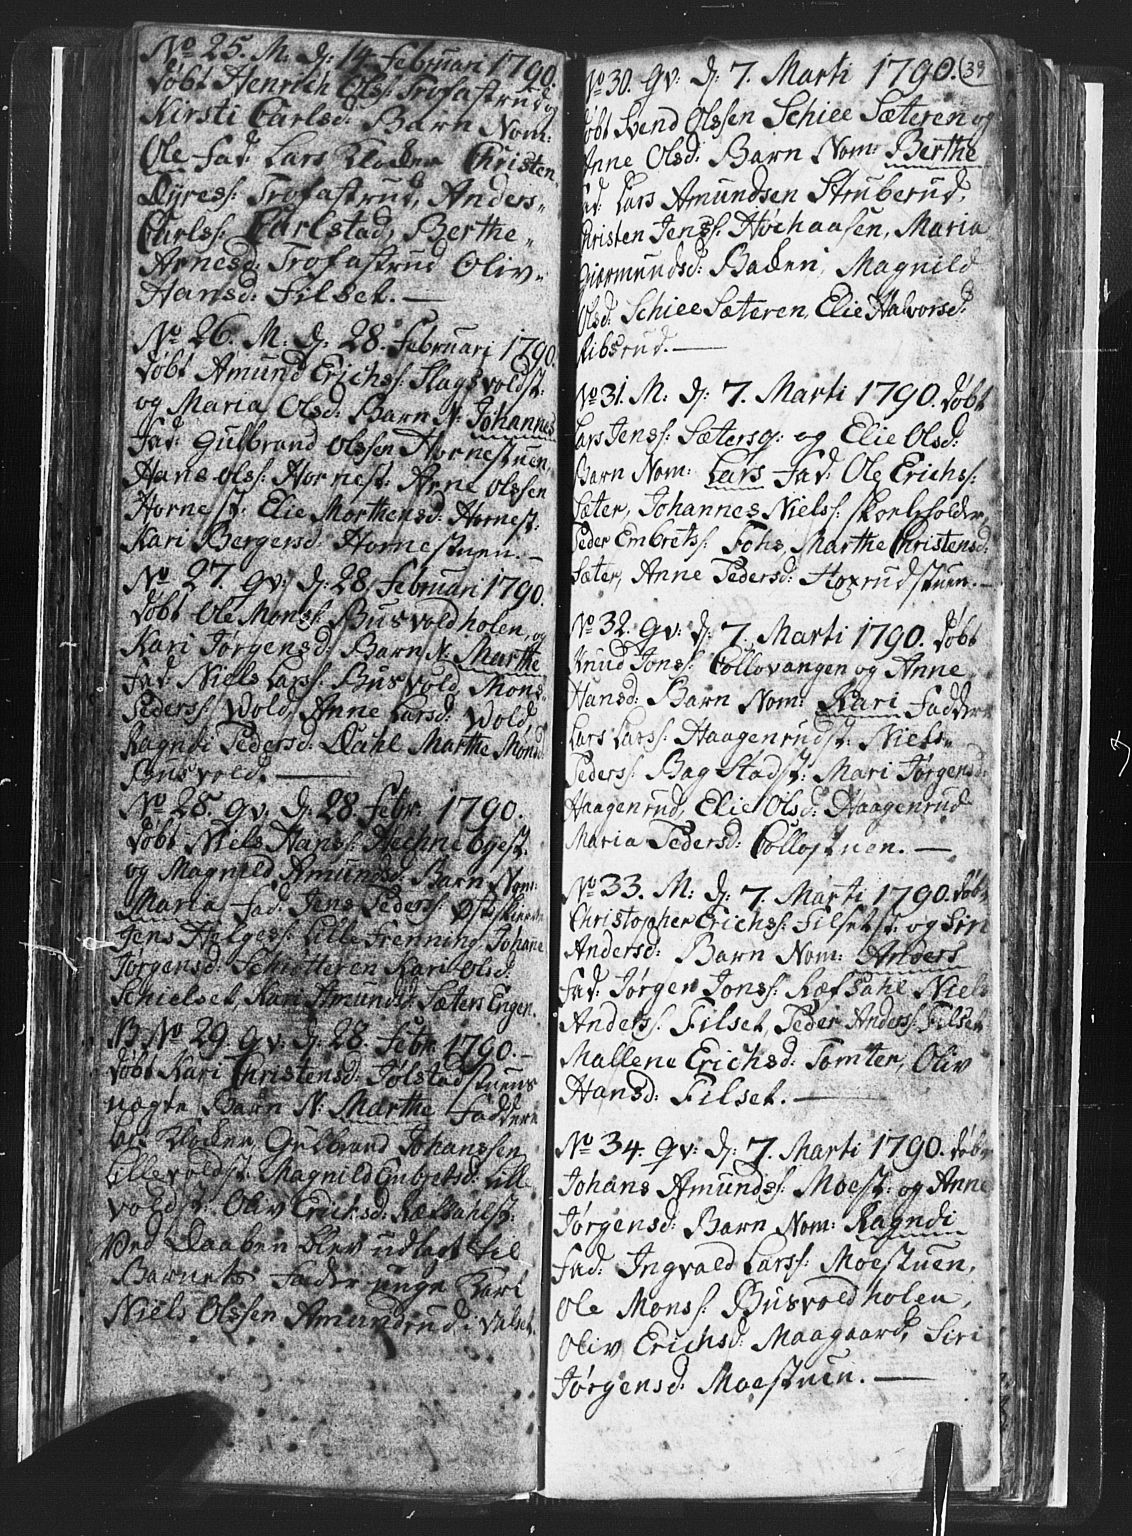 No 25. M. d: 14 Februari 1790.
døbt Henrich Ols: Trofastrud og
Kirsti Carlsd: Barn Nom:
Ole Fad: Lars Klocker Christen
Dyres: Trofastrud, Anders
Carls: Carlstad, Berthe
Arnesd: Trofastrud Oliv
Hansd: Filset. —
No 26. M. d: 28. Februari 1790.
døbt Amund Erichs: Slagsvoldst:
og Maria Olsd: Barn N: Johannes
Fad: Gulbrand Olssen Hornestuen,
Hans Ols: Hornest: Arne Olssen
Hornest: Elie Morthensd: Hornest:
Kari Bergersd: Hornestuen. —
No 27. Gv: d: 28. Februari 1790.
døbt Ole Mons: Busvoldholen, og
Kari Jørgensd: Barn N: Marthe
Fad: Niels Lars: Busvold, Mons
Peders: Vold, Anne Larsd: Vold,
Ragndi Pedersd: Dahl Marthe Monsd:
Busvold. —
No 28. Gv. d: 28 Febr. 1790.
døbt Niels Hans: Hechnebyest.
og Magnild Amundsd: Barn Nom:
Maria Fad: Jens Peders:
Jens Helges: Lille Frenning, Johane
Jørgensd: Schiøtteren Kari Olsd:
Schielset Kari Amundsd: Sæter Engen.
NB No 29. Gv: d: 28. Febr. 1790. —
døbt Kari Christensd: Jølstadstuens
uægte Barn N: Marthe Faddere
Klocker, Gulbrand Johanssen
Lillevoldst: Magnild Embretsd: Lille
voldst: Oliv Erichsd: Ræfsahlst:
Ved Daaben blev udlagt til
Barnets Fader unge Karl
Niels Olssen Amundrud i Valset.
39
No 30. Gv: d: 7. Marti 1790.
døbt Svend Olssen Schiee Sæteren og
Anne Olsd: Barn Nom: Berthe
Fad: Lars Amundsen Struberud,
Christen Jens: Høehaasen, Maria
Giermundsd: Backen, Magnild
Olsd: Schiee Sæteren, Elie Halvorsd:
Ribsrud. —
No 31. M: d: 7. Marti 1790. døbt
Lars Jens: Sætersg: og Elie Olsd:
Barn Nom: Lars Fad: Ole Erichs:
Sæter, Johannes Niels: Skoeleholder,
Peder Embrets: Fohs, Marthe Christensd:
Sæter, Anne Pedersd: Hoxrudstuen. —
No 32. Gv: d: 7. Marti 1790. døbt
Knud Jons: Collovangen og Anne
Hansd: Barn Nom: Kari Faddere
Lars Lars: Haagenrudst: Niels
Peders: Bagstadst: Mari Jørgensd:
Haagenrud, Elie Olsd: Haagenrud
Maria Pedersd: Collostuen. —
No 33. M. d: 7. Marti 1790. døbt
Christopher Erichs: Filsetst. og Siri
Andersd: Barn Nom: Anders
Fad: Jørgen Jons: Ræfsahl Niels
Anders: Filset, Peder Anders: Filset
Mallene Erichsd: Tomter, Oliv
Hansd: Filset. —
No 34. Gv: d: 7. Marti 1790. døbt
Johans Amunds: Moest: og Anne
Jørgensd: Barn Nom: Ragndi
Fad: Ingvald Lars: Moestuen,
Ole Mons: Busvoldholen,
Oliv Erichsd: Maagaard, Siri
Jørgensd: Moestuen. —